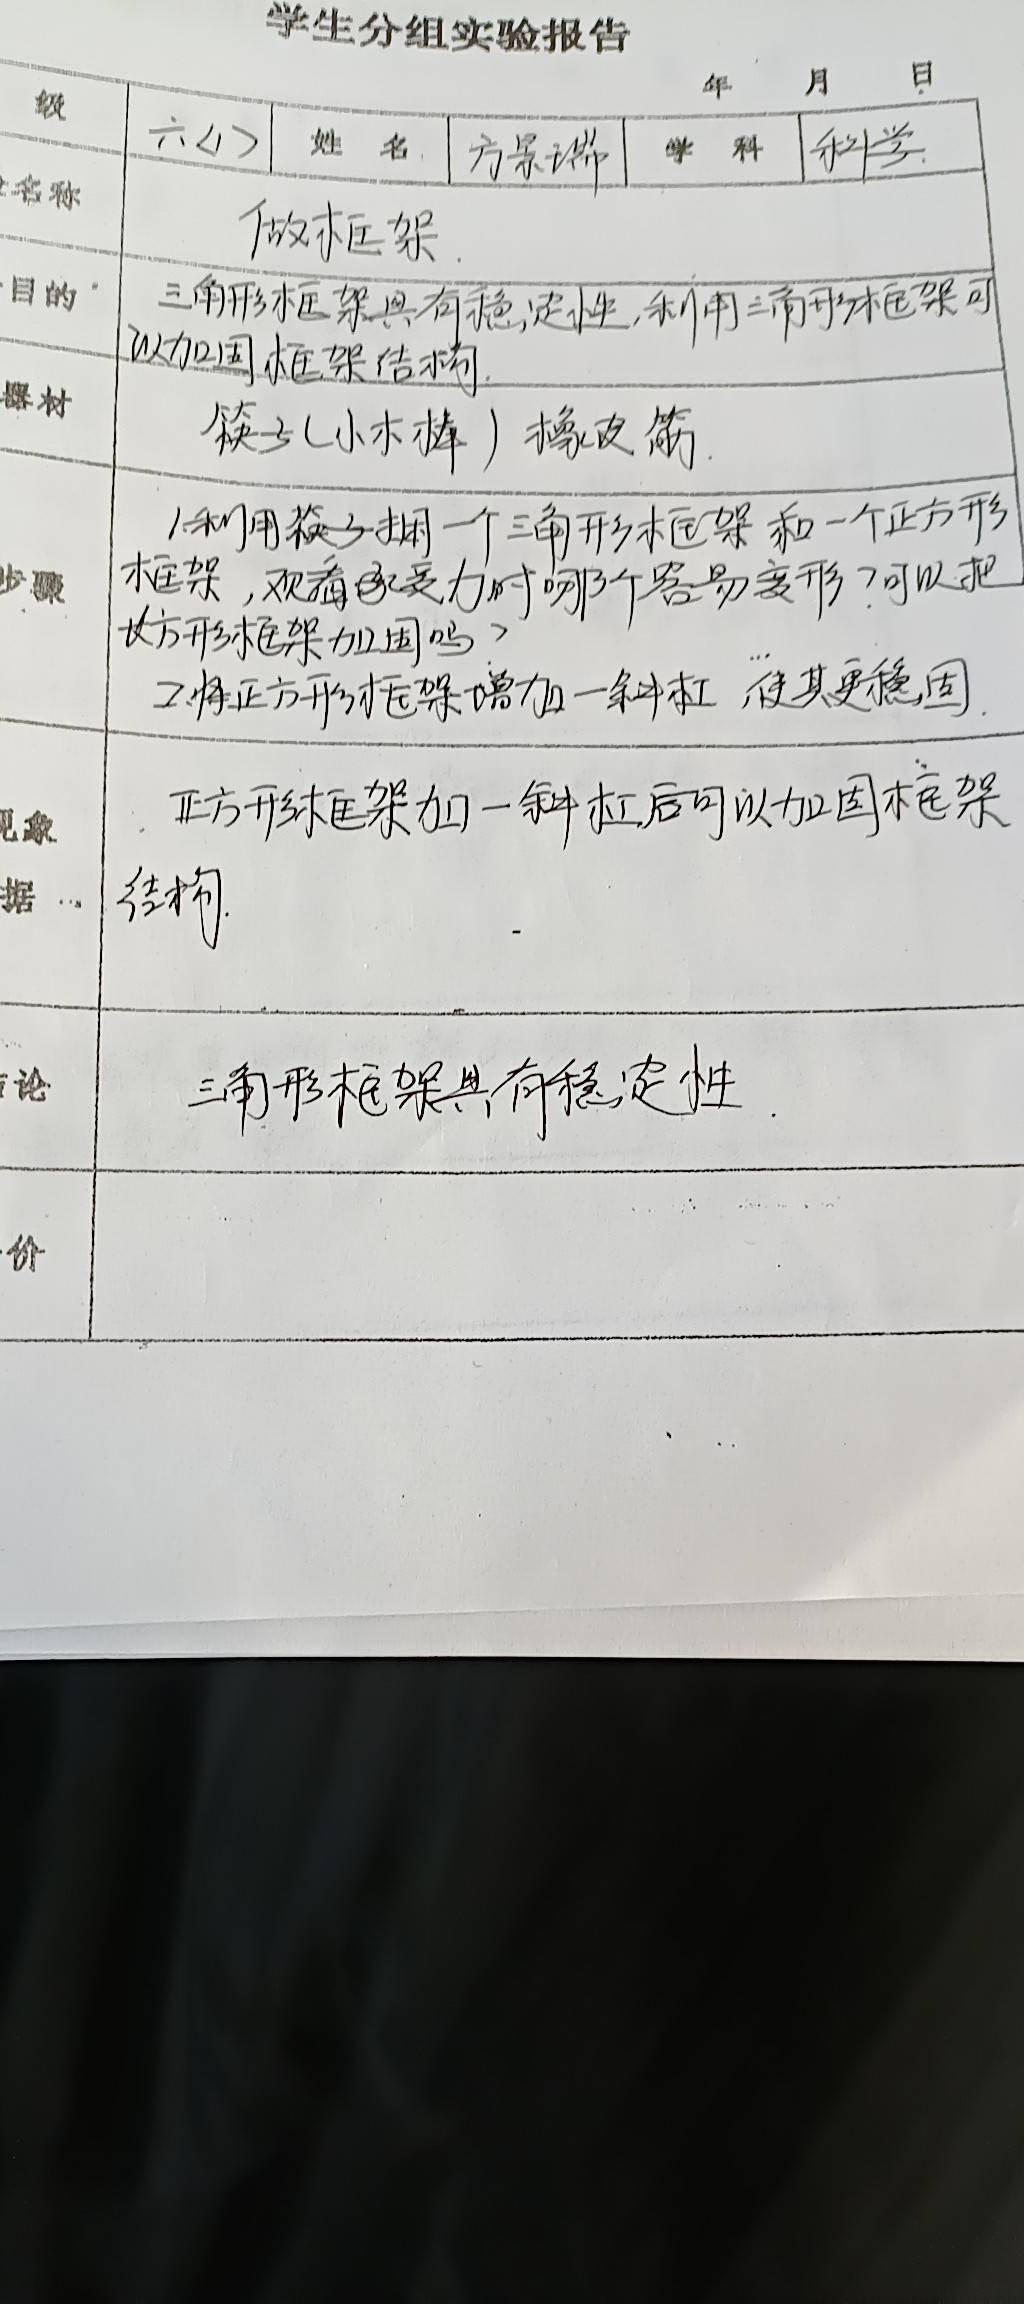 学生分组实验报告
年 月 日
级 六<1> 姓名 方景瑞 学科 科学.
名称 做框架.
目的 三角形框架具有稳定性,利用三角形框架可
以加固框架结构.
器材 筷子(小木棒) 橡皮筋.
1.利用筷子捆一个三角形框架和一个正方形
步骤 框架,观看 受力时哪个容易变形?可以把
方形框架加固吗?
2.将正方形框架增加一斜杠,使其更稳固.
现象 正方形框架加一斜杠后可以加固框架
据 结构.
论 三角形框架具有稳定性.
价